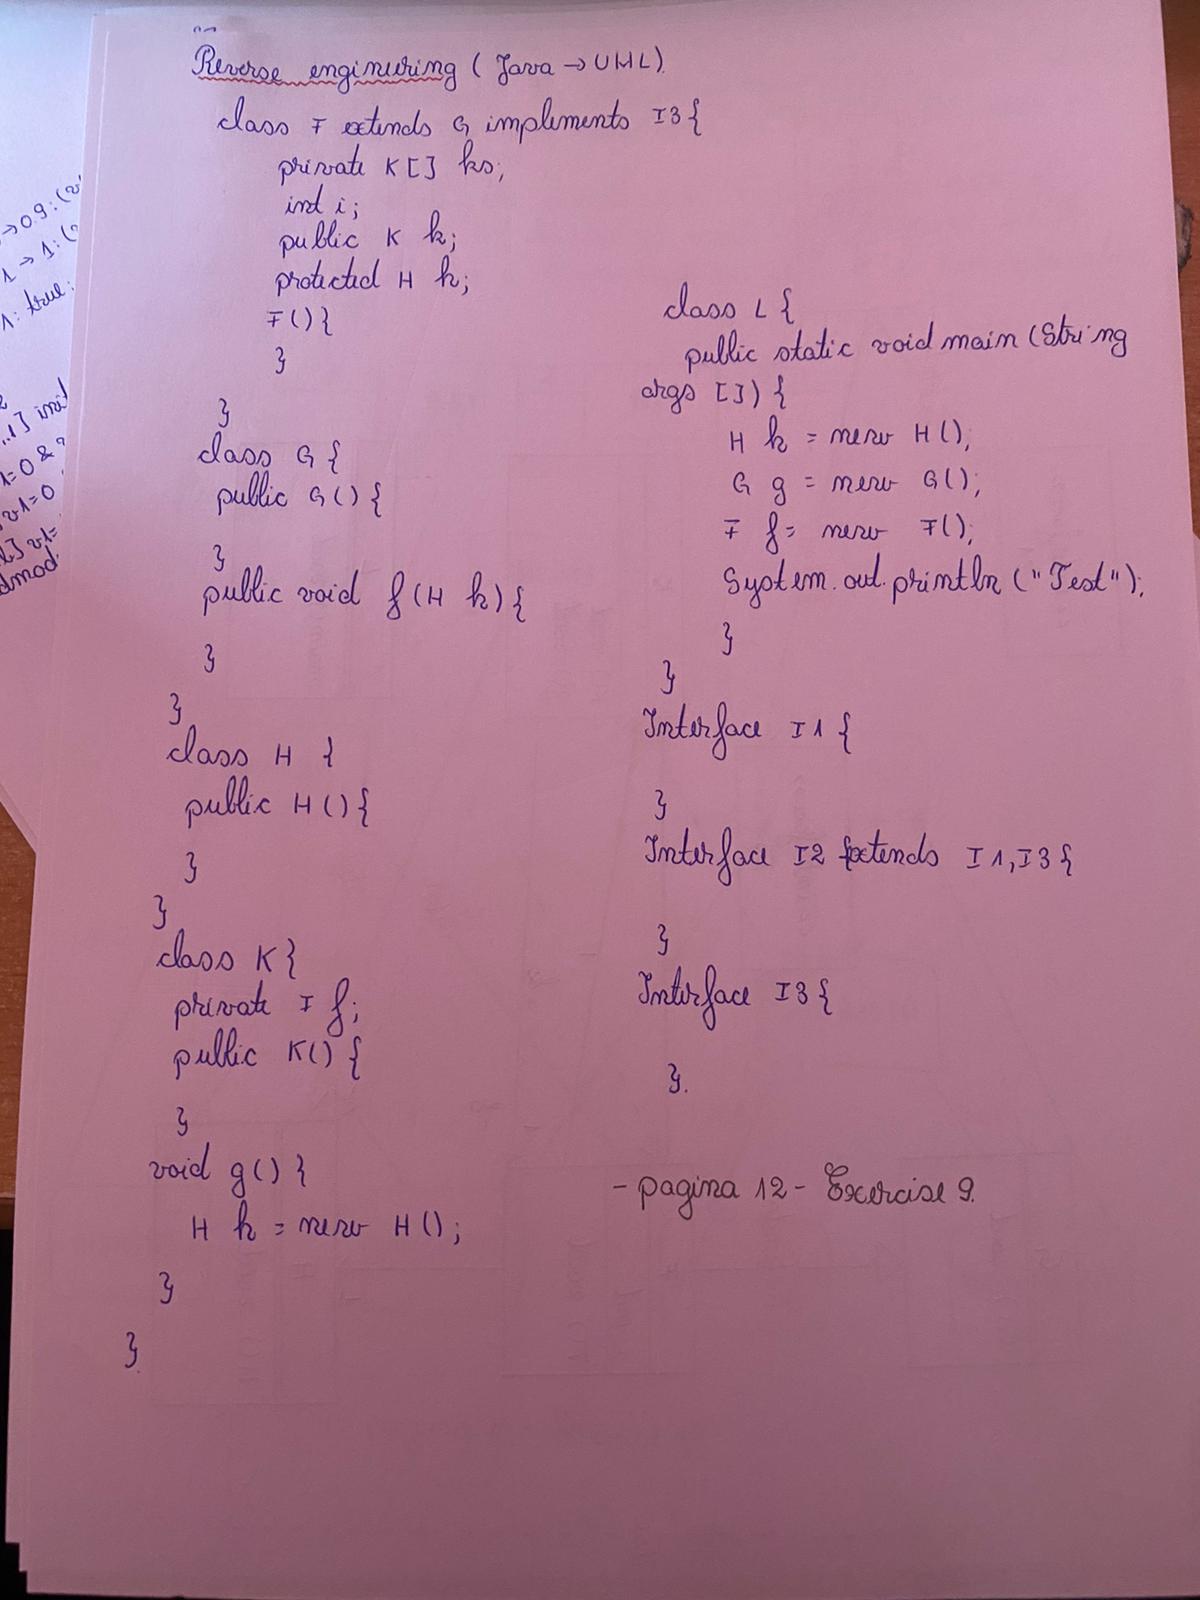 Reverse engineering (Java → UML)
class F extends G implements I3 {
private K [ ] ks;
int i;
public K k;
protected H h;
F() {
}
}
class G {
public G() {
}
public void f(H h) {
}
}
class H {
public H() {
}
}
class K {
private F f;
public K() {
}
void g() {
H h = new H();
}
}
class L {
public static void main (String
args [ ]) {
H h = new H();
G g = new G();
F f = new F();
System.out.println ("Test");
}
}
Interface I1 {
}
Interface I2 extends I1, I3 {
}
Interface I3 {
}.
- pagina 12 - Exercise 9.
→ 0.9: (v
1 → 1: (
1: true:
..1] init
1=0 & ?
v1=0
] v1=
dmod